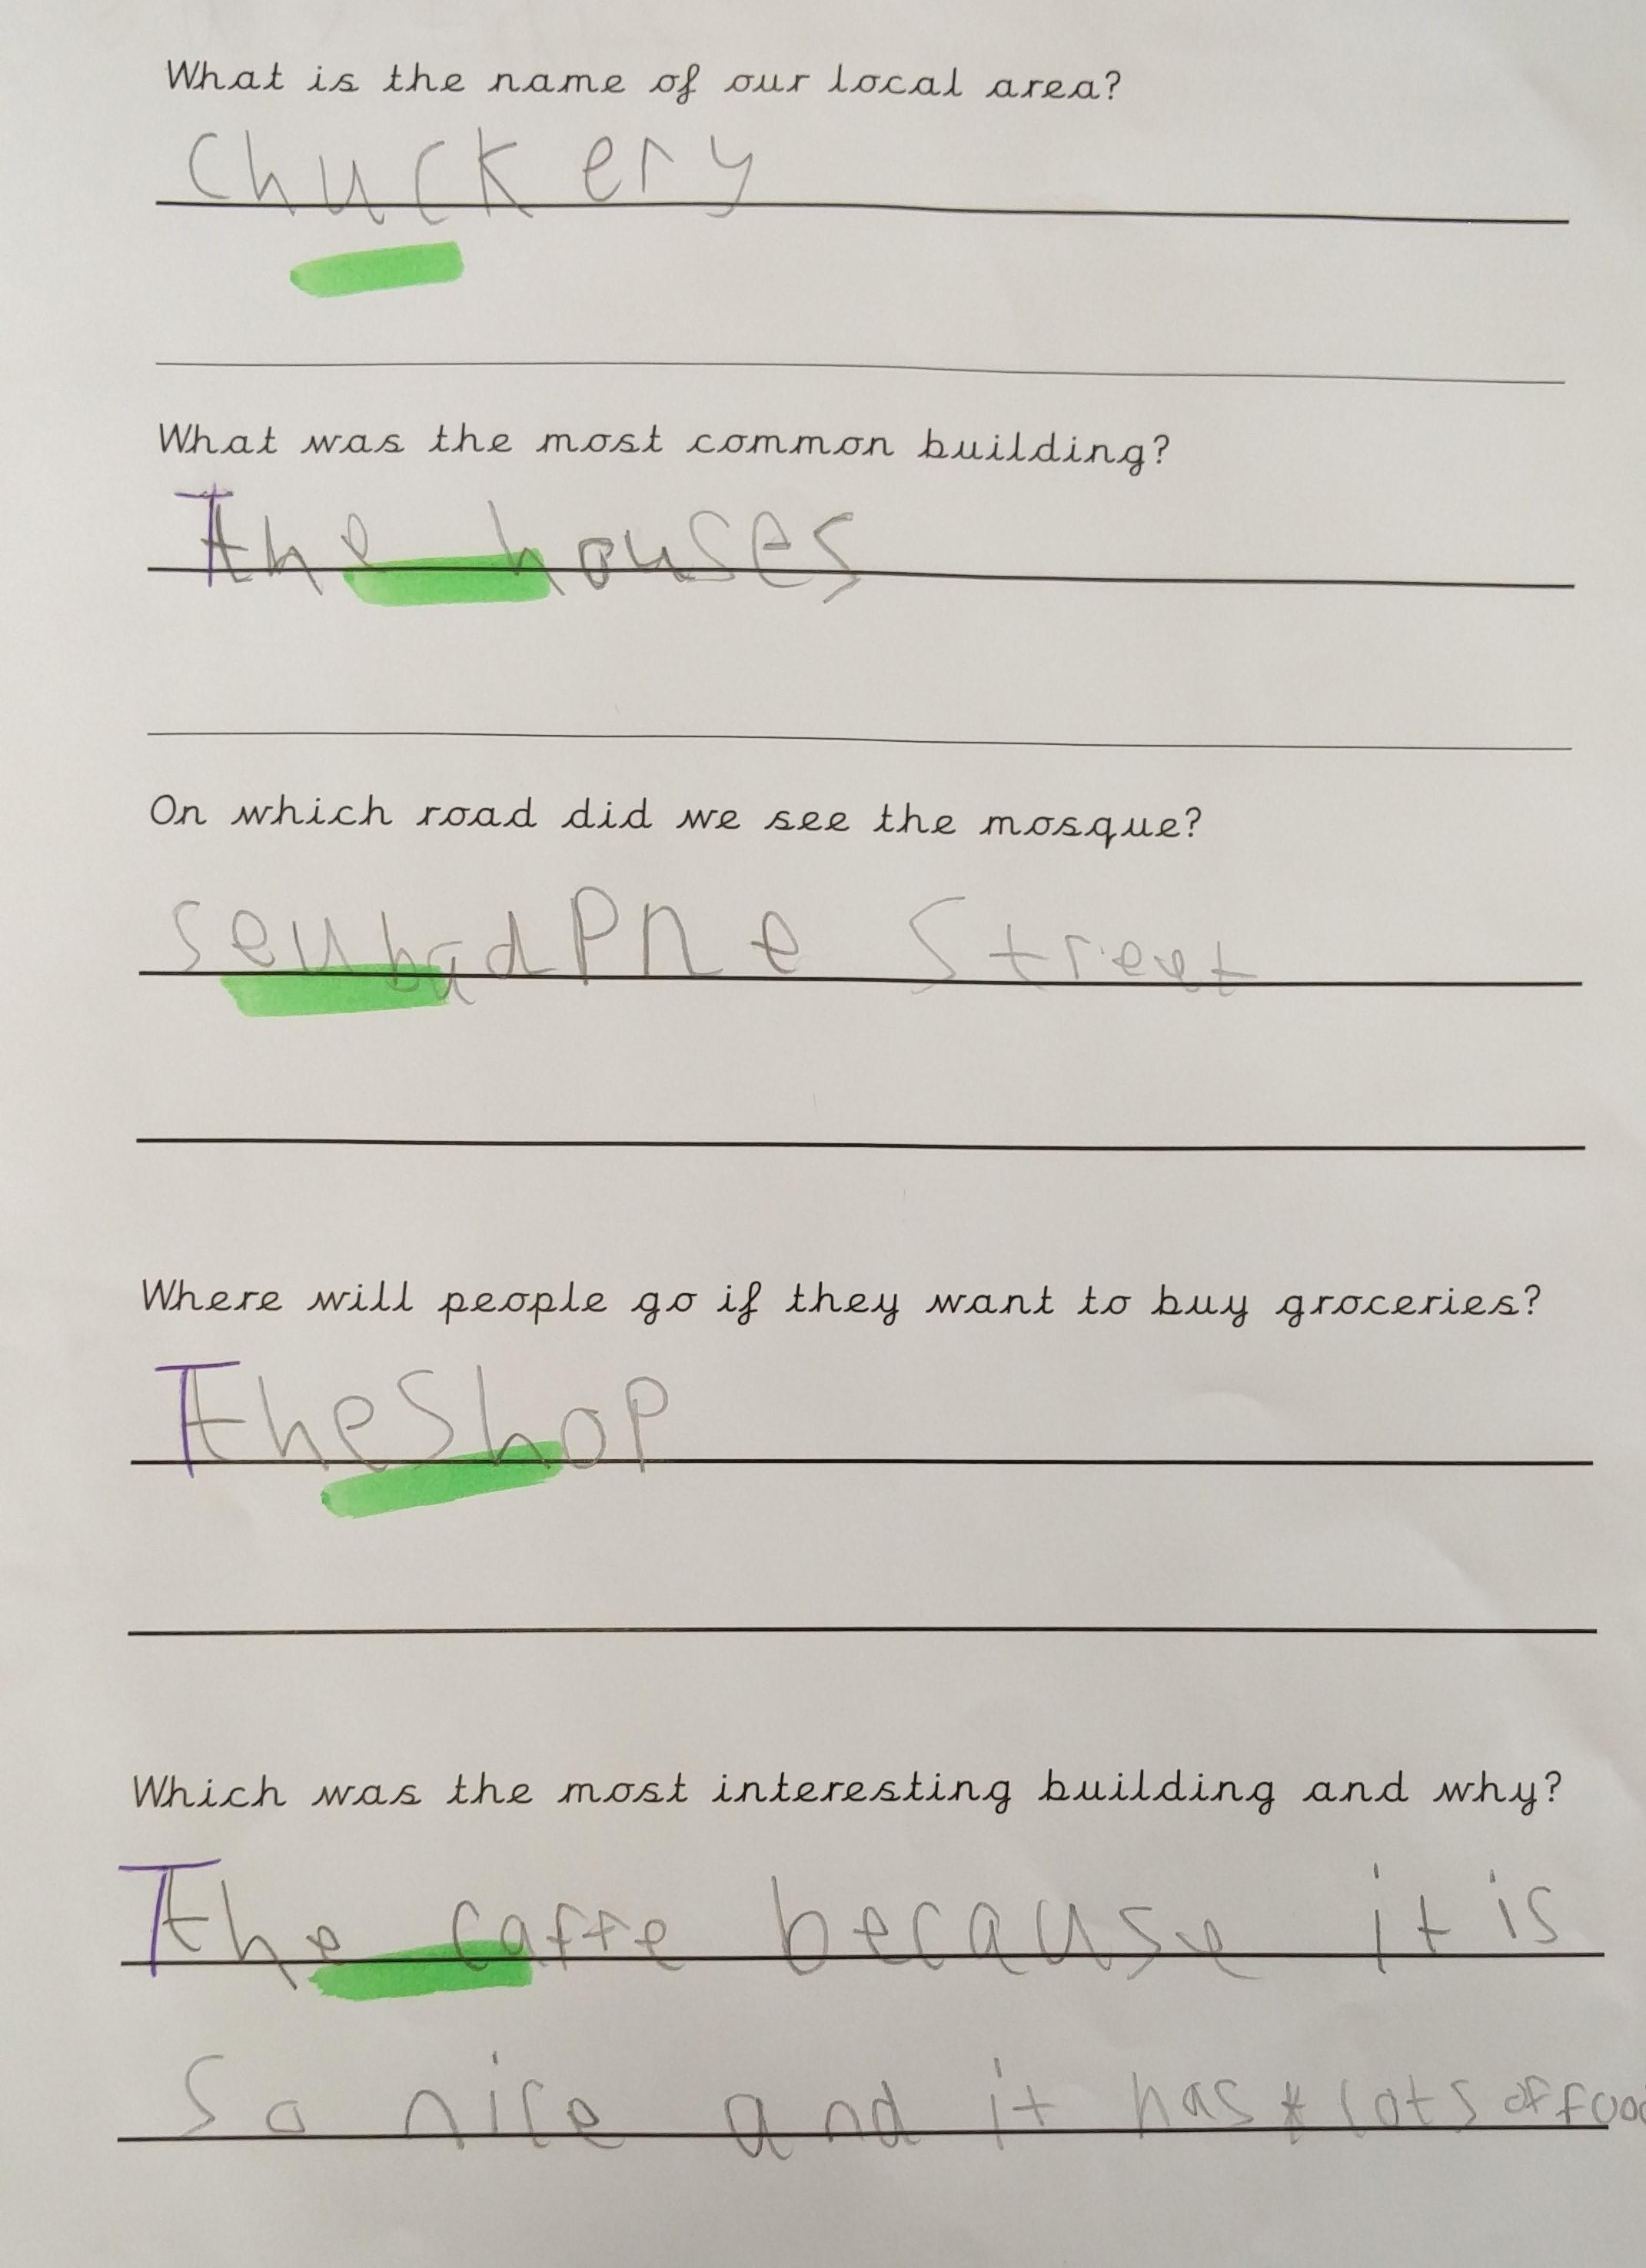 What is the name of our local area?
Chuckery
What was the most common building?
The houses
On which road did we see the mosque?
Street
Where will people go if they want to buy groceries?
The Shop
Which was the most interesting building and why?
The caffe because it is
So nice and it has lots of food